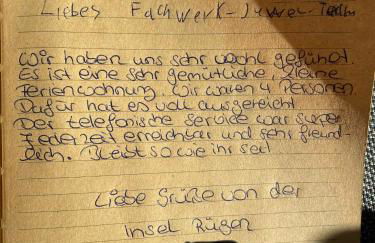 Liebes Fachwerk-Juwel-Team
Wir haben uns sehr wohl gefühlt.
Es ist eine sehr gemütliche, kleine
Ferienwohnung. Wir waren 4 Personen
Dafür hat es voll ausgereicht
Der telefonische Service war super
Jederzeit erreichbar und sehr freund-
lich. Bleibt so wie ihr seit
Liebe Grüße von der
Insel Rügen